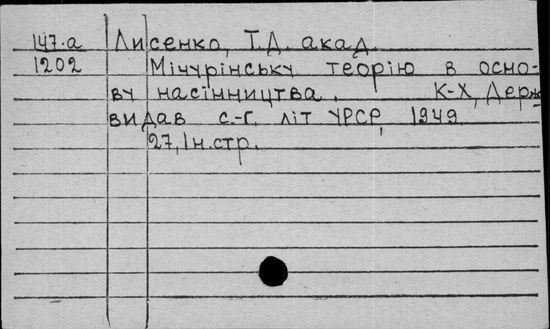 147.а Лисенко, Т.Д. акад.
1202 Мічурінську теорію в осно-
ву насінництва. К-Х, Держ
видав с.-г. літ УРСР, 1949
27, 1н.стр.